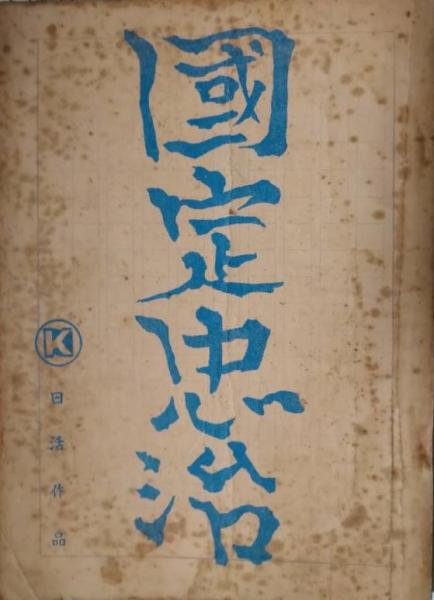 國定忠治
K
日活作品